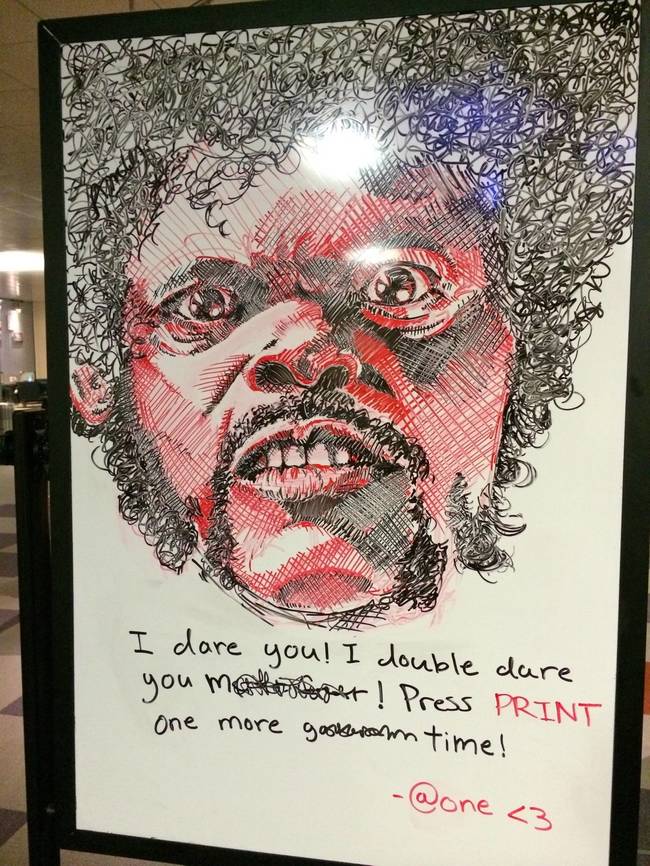 I dare you! I double dare
you ! Press PRINT
one more time!
-@one <3